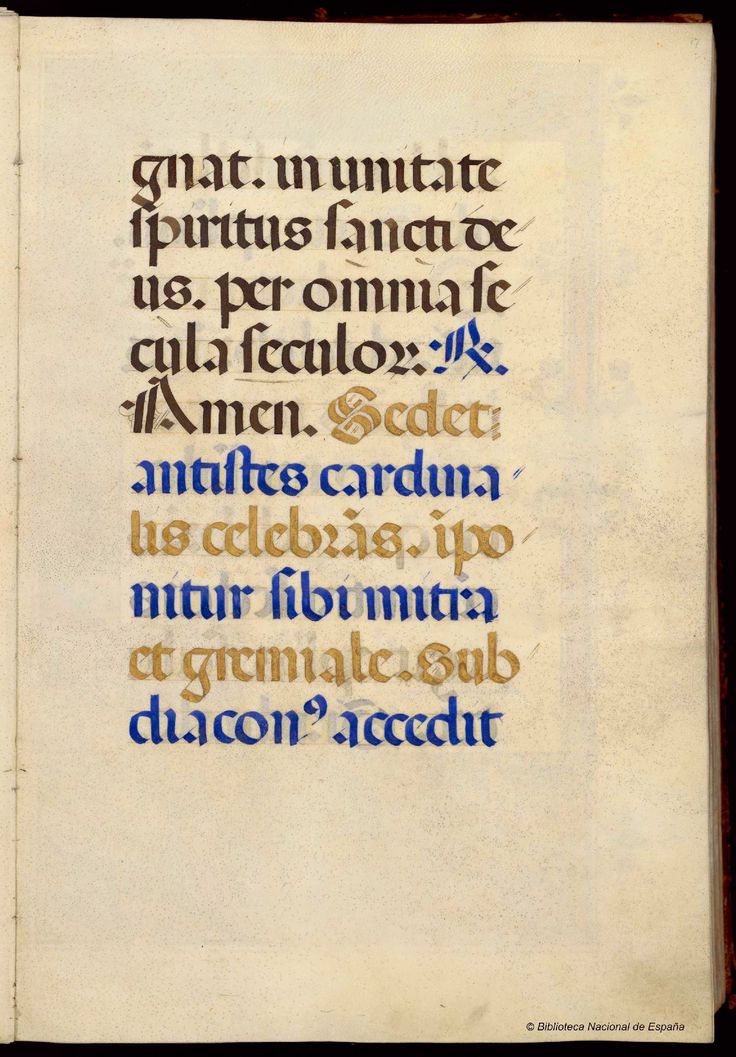 gnat. in unitate
spiritus sancti de
us. per omnia se
cula seculor. R.
Amen. Sedet
antistes cardina
lis celebrãs. ĩpo
nitur sibi mitra
et gremiale. Sub
diaconꝰ accedit
© Biblioteca Nacional de España